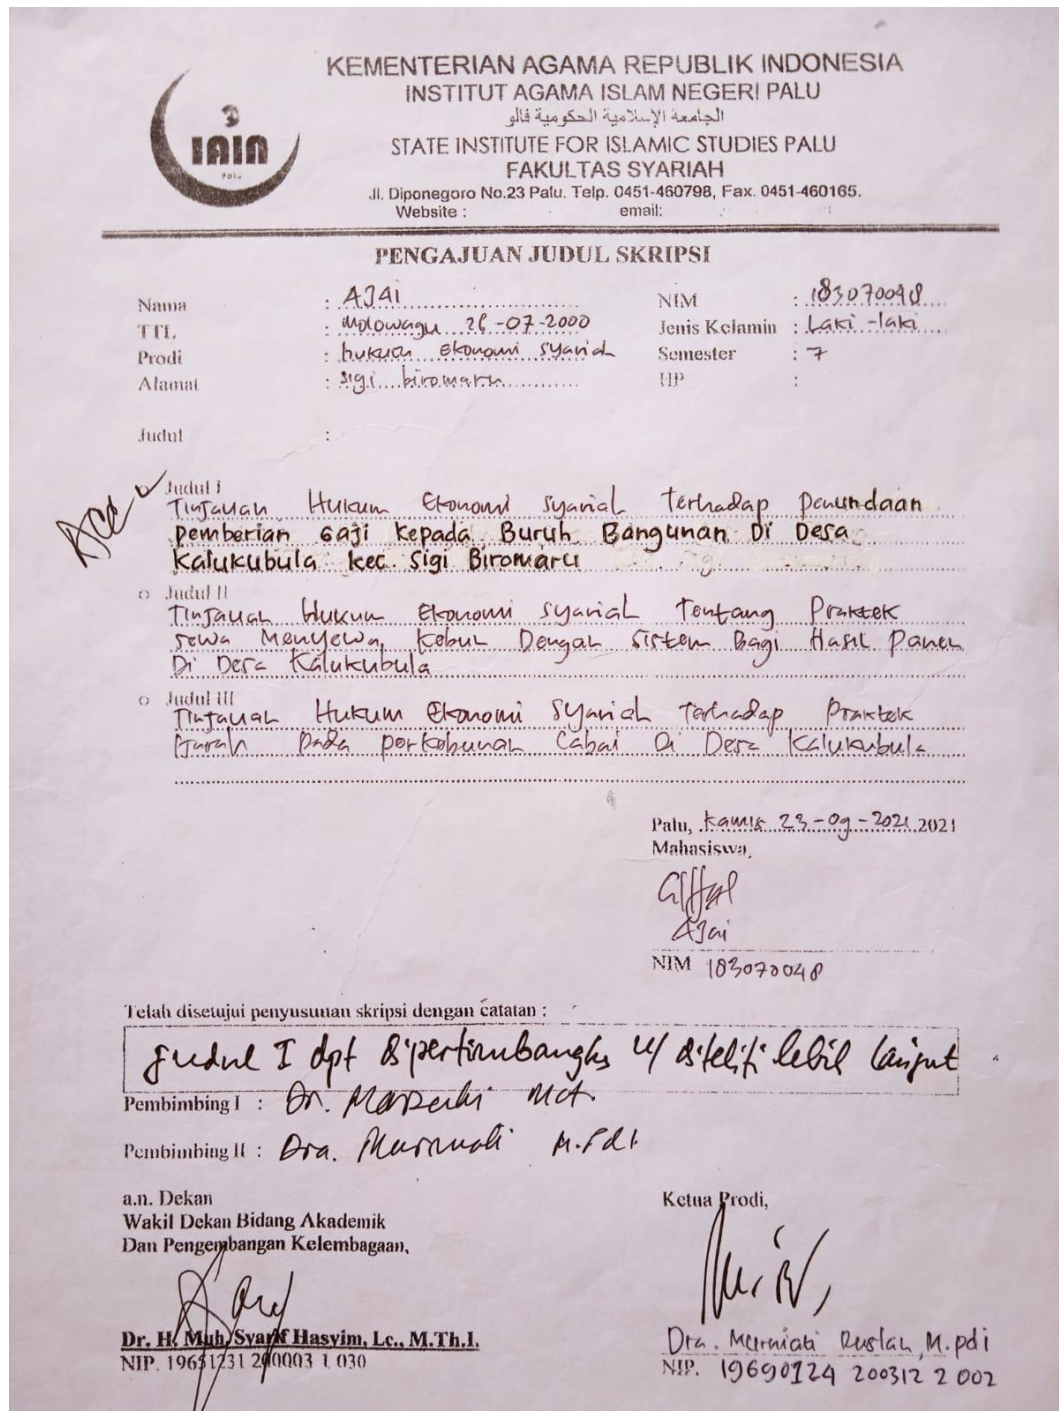 KEMENTERIAN AGAMA REPUBLIK INDONESIA
INSTITUT AGAMA ISLAM NEGERI PALU
الجامعة الإسلامية الحكومية فالو
STATE INSTITUTE FOR ISLAMIC STUDIES PALU
FAKULTAS SYARIAH
Jl. Diponegoro No.23 Palu. Telp. 0451-460798, Fax. 0451-460165.
Website : email:
IAIN
Palu
PENGAJUAN JUDUL SKRIPSI
Nama : AJAi NIM : 183070048
TTL : 26-07-2000 Jenis Kelamin : Laki-laki
Prodi : hukum ekonomi syariah Semester : 7
Alamat : sigi biromaru HP :
Judul :
Acc
Judul I
Tinjauan Hukum Ekonomi Syariah Terhadap Penundaan
pemberian Gaji Kepada Buruh Bangunan Di Desa
Kalukubula kec. Sigi Biromaru
Judul II
Tinjauan Hukum Ekonomi Syariah Tentang Praktek
sewa Menyewa Kebun Dengan Sistem Bagi Hasil Panen
Di Desa Kalukubula
Judul III
Tinjauan Hukum Ekonomi Syariah Terhadap Praktek
Ijarah Pada perkebunan Cabai Di Desa Kalukubula
Palu, Kamis 23-09-2021 2021
Mahasiswa,
AJai
NIM 183070048
Telah disetujui penyusunan skripsi dengan catatan :
Judul I dpt dipertimbangkn u/ diteliti lebih lanjut
Pembimbing I : Dr.
Pembimbing II : Dra. Murniati M.Pdi
a.n. Dekan
Wakil Dekan Bidang Akademik
Dan Pengembangan Kelembagaan,
Dr. H. Muh. Syarif Hasyim, Lc., M.Th.I.
NIP. 19651231 200003 1 030
Ketua Prodi,
Dra. Murniati Ruslan, M.pdi
NIP. 19690124 200312 2 002